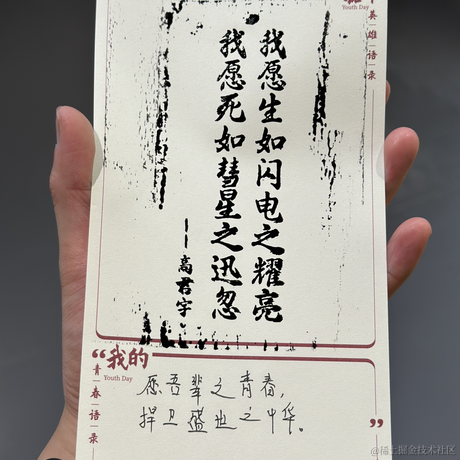 Youth Day
英雄语录
我愿生如闪电之耀亮
我愿死如彗星之迅忽
——高君宇
“我的
Youth Day
青春语录
愿吾辈之青春,
捍卫盛世之中华。
”
@稀土掘金技术社区